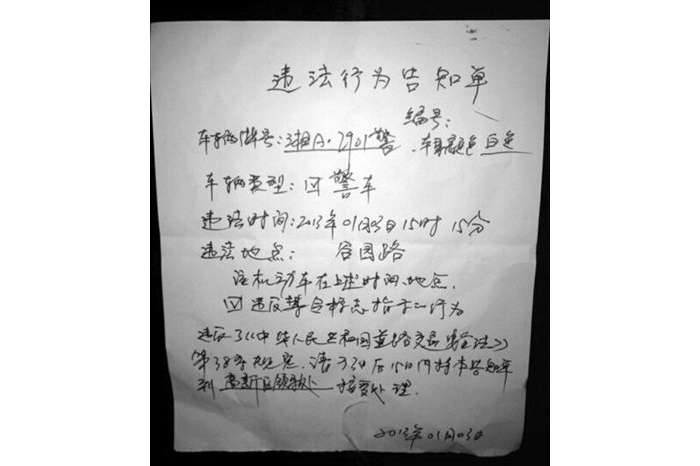 违法行为告知单
编号:
车辆牌号:湘A·2901警.车身颜色 白色
车辆类型:☑警车
违法时间:2013年01月03日15时15分
违法地点: 谷园路
该机动车在上述时间、地点.
☑违反禁令标志指示行为
违反了《中华人民共和国道路交通安全法》
第38条规定.请于3日后15日内持本告知单
到 高新区领秘处 接受处理.
2013年01月03日